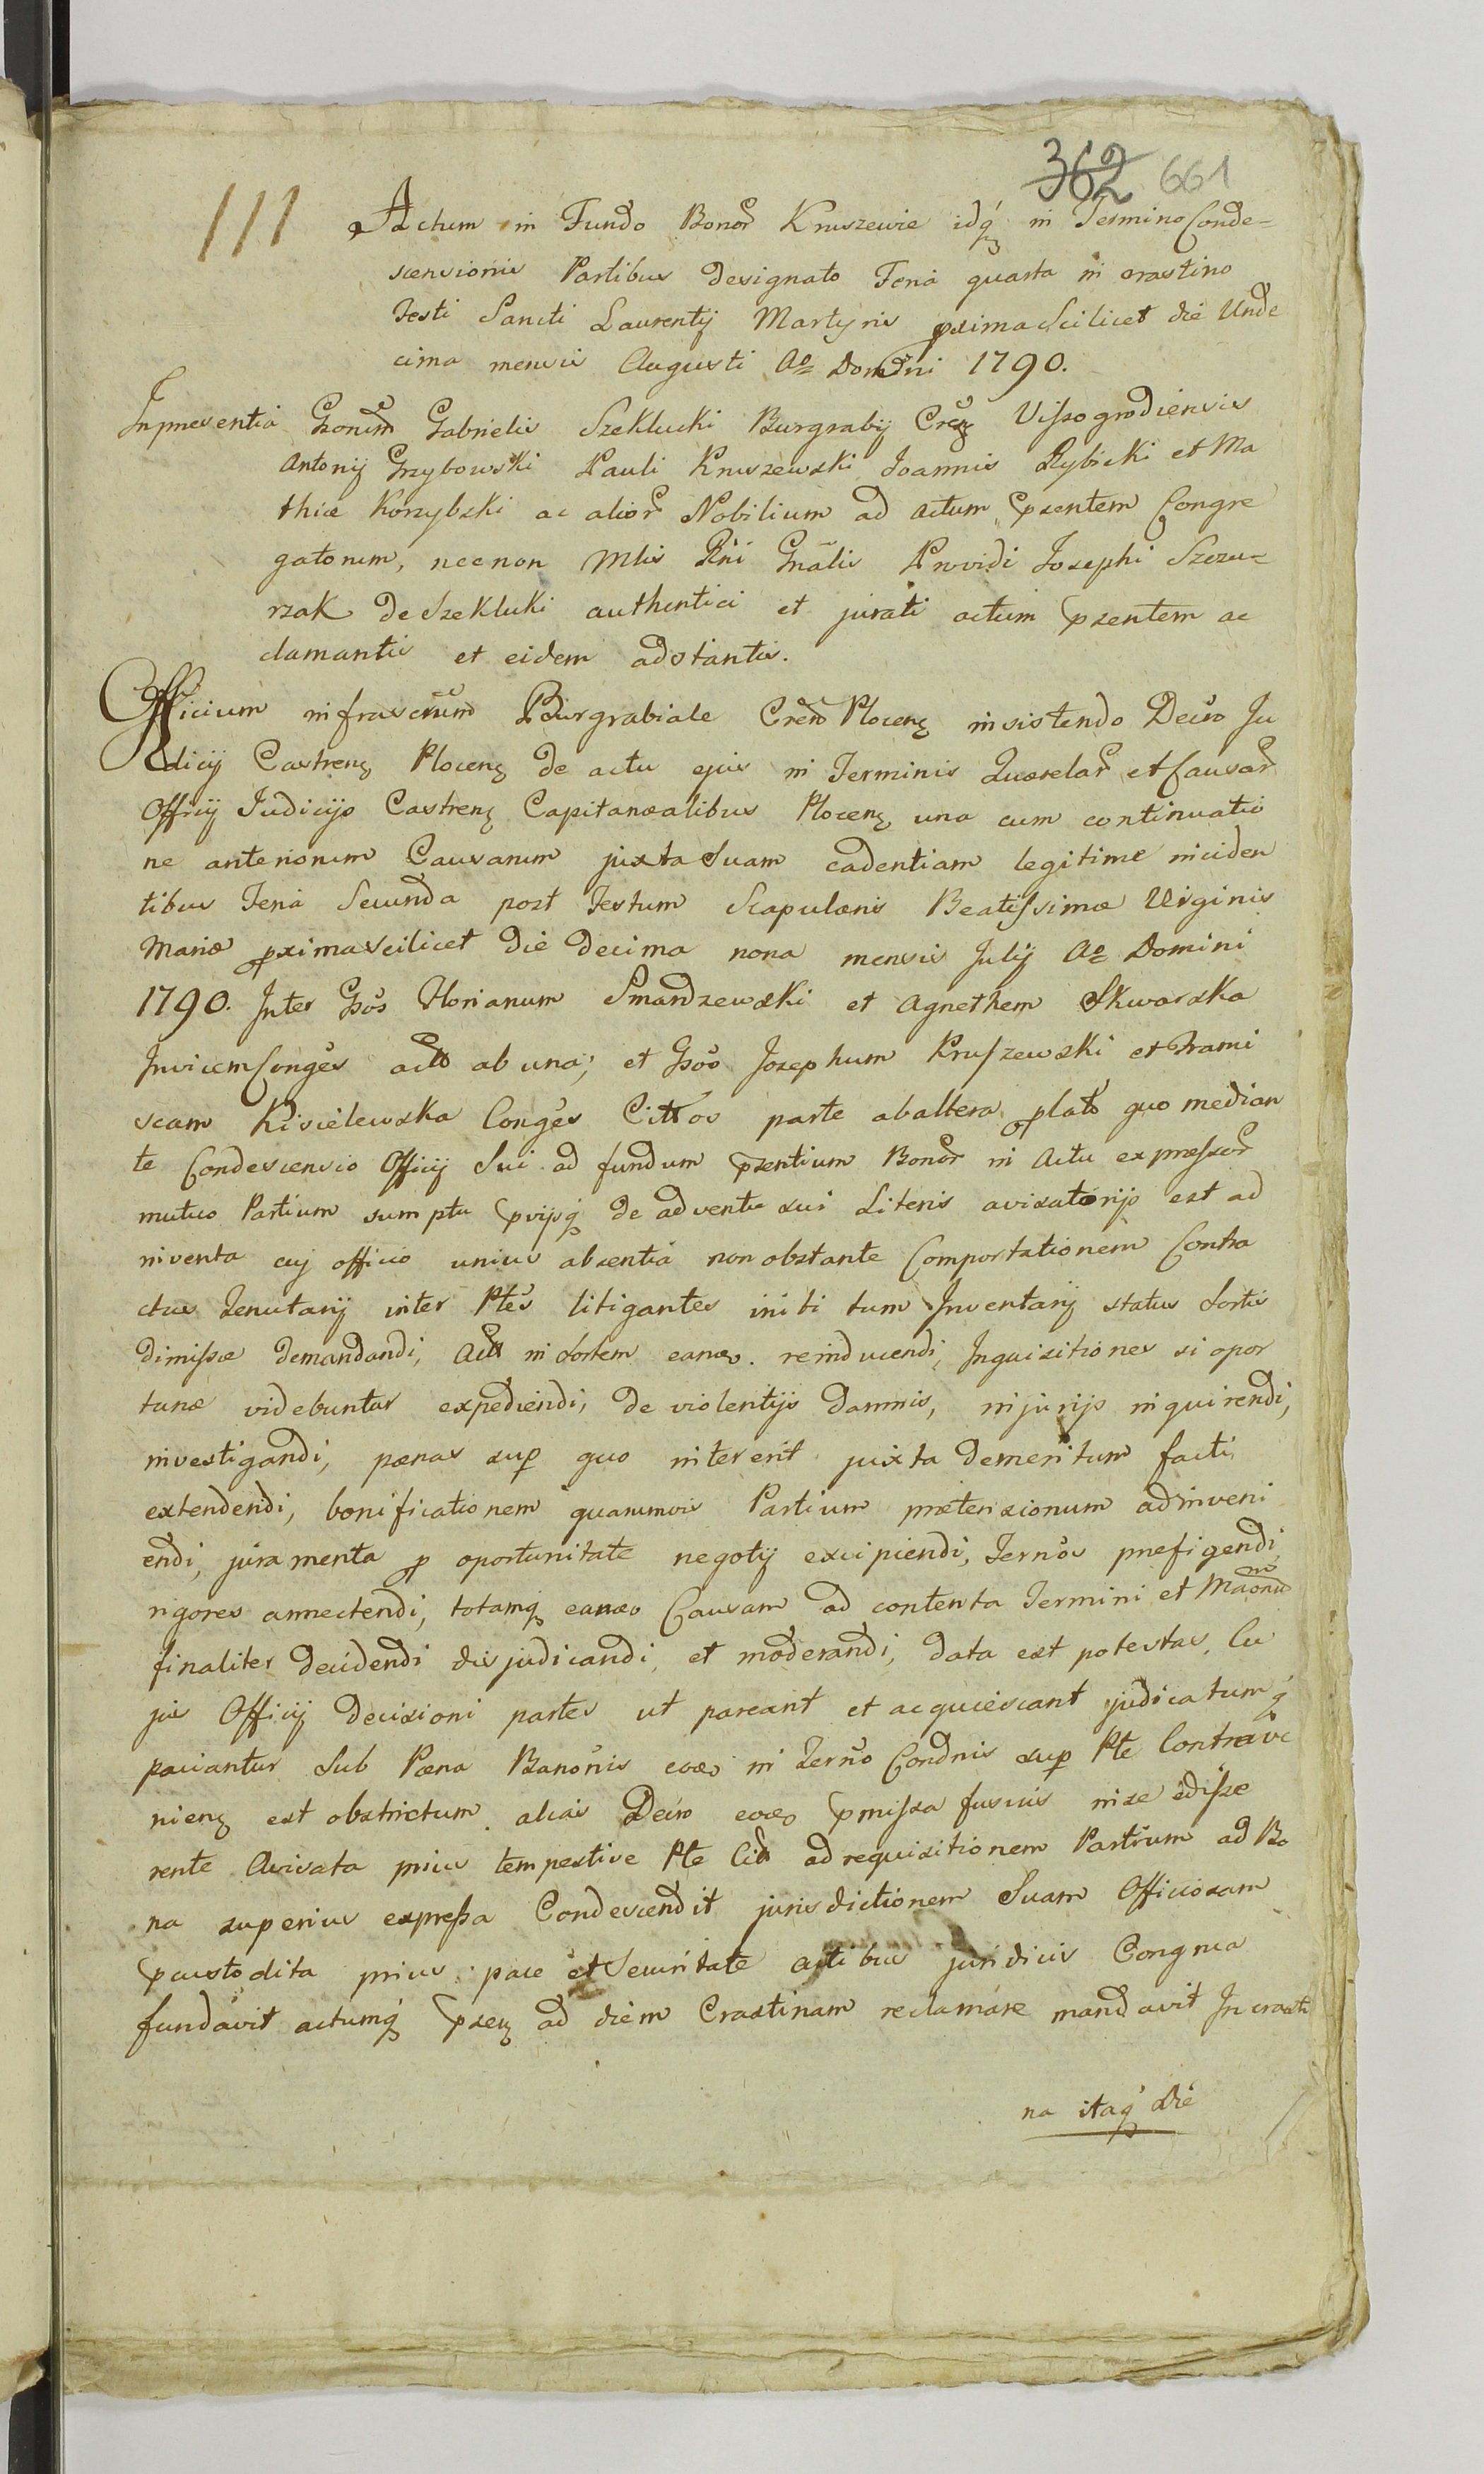 362 661
111
Actum in Fundo Bonor Kruszewie idq in Termino Conde=
scensionis Partibus designato Feria quarta in crastino
Festi Sancti Laurentij Martyris pxima Scilicet die Unde
cima mensis Augusti Ao Domini 1790.
Inpraesentia Gsorum Gabrielis Szeklucki Burgrabij Cren Vissogrodiensis
Antonij Grzybowski Pauli Kruszewski Joannis Rybicki et Ma
thiae Korzybski ac alior Nobilium ad actum psentem Congre
gatorum, necnon Mlis Rni Gnalis Providi Josephi Szczu=
rzak de Szekluki authentici et jurati actum psentem ac
clamantis et eidem adstantis.
Officium infrascrum Burgrabiale Cren Plocens insistendo Decro Ju
dicij Castrens Plocens de actu ejus in Terminis Querelar et Causar
Officij Judicijs Castrens Capitanealibus Plocens una cum continuatio
ne anteriorum Causarum juxta Suam cadentiam legitime inciden
tibus Feria Secunda post Festum Scapularis Beatissimae Virginis
Mariae pxima Scilicet die decima nona mensis Julij Ao Domini
1790. Inter Gsos Florianum Smardzewski et Agnethem Skwarska
Invicem Conges act ab una; et Gsos Josephum Kruszewski et Franci
scam Kisielewska Conges Cittos parte ab altera plato quo median
te Condescensio Officij Sui ad fundum psentium Bonor in Actu expressor
mutuo Partium sumptu pvijsq de adventu sui Literis avisatorijs est ad
inventa cuj officio unius absentia non obstante Comportationem Contra
ctus Tenutarij inter Ptes litigantes initi tum Inventarij status Sortis
dimissae demandandi, act in Sortem eand. reinducendi, Inquisitiones si opor
tunae videbuntur expediendi, de violentijs damnis, injurijs inquirendi,
investigandi, paenas sup quo intererit juxta demeritum facti
extendendi, bonificationem quarumvis Partium praetensionum adinveni
endi, juramenta p oportunitate negotij excipiendi, Ternos praefigendi
rigores annectendi, totamq eand Causam ad contenta Termini et
finaliter decidendi dis judicandi, et moderandi, data est potestas, Cu
jus Officij decisioni partes ut pareant et acquiescant judicatumq
paciantur Sub Paena Banonis eod in Terno Condnis sup Pte Contrave
niens est obstrictum. alias Decro eod pmissa fusius in se disse
rente Avisata prius tempestive Pte Citt ad requisitionem Partium ad Bo
na superius expressa Condescendit jurisdictionem Suam Officiosam
pcustodita prius pace et Securitate actibus juridicis Congrua
fundavit actumq psens ad diem Crastinam reclamare mandavit In crasti
na itaq die